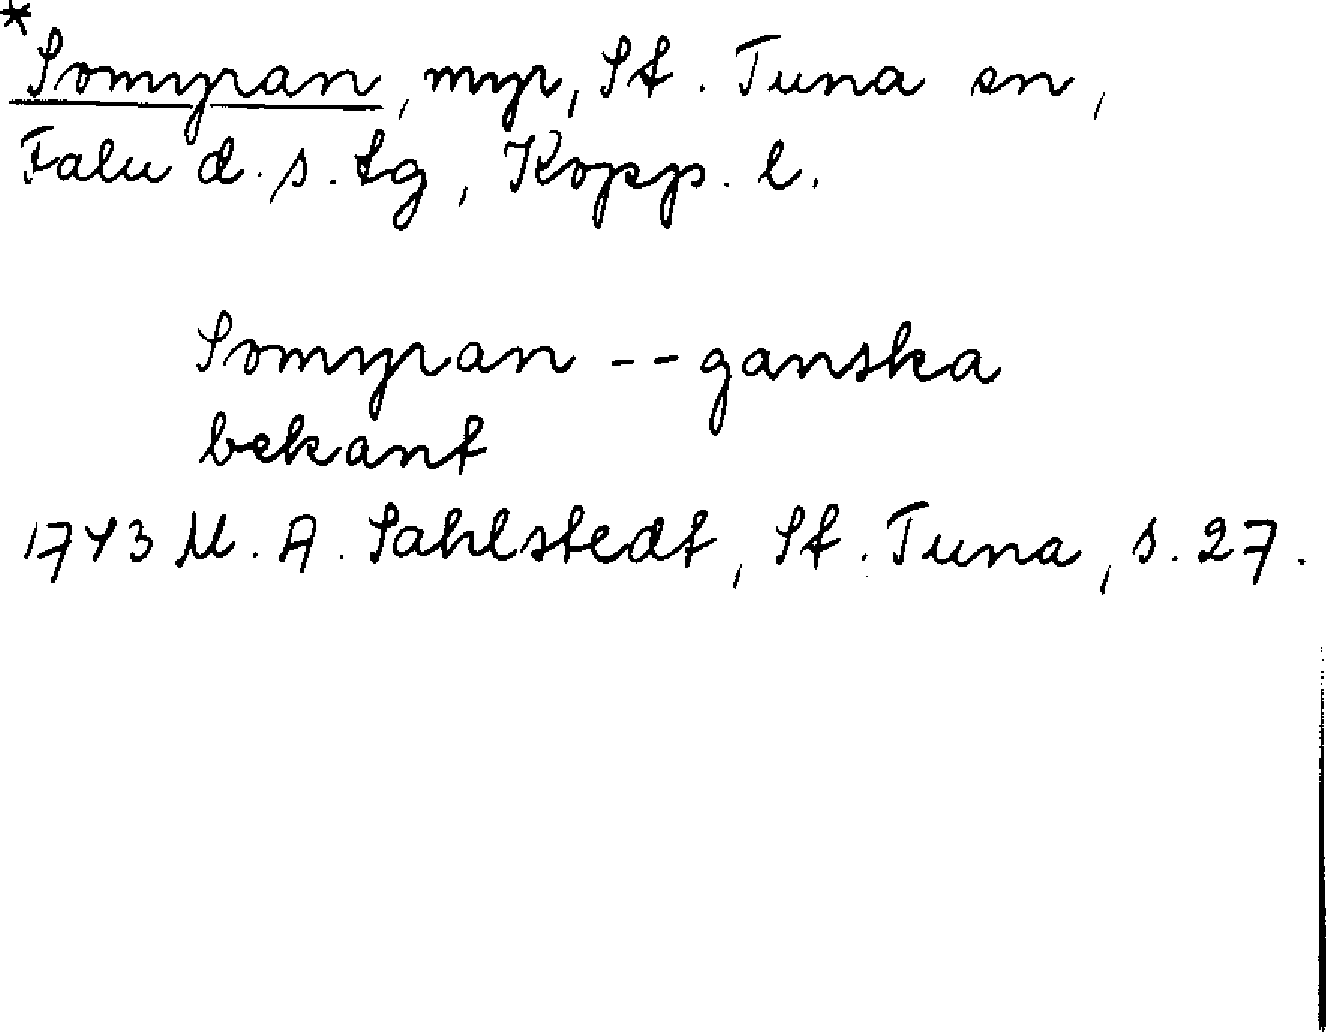 *
Somyran, myr, St. Tuna sn,
Falu d.s. tg, Kopp. l.
Somyran -- ganska
bekant
1743 M. A. Sahlstedt, St. Tuna, s. 27.